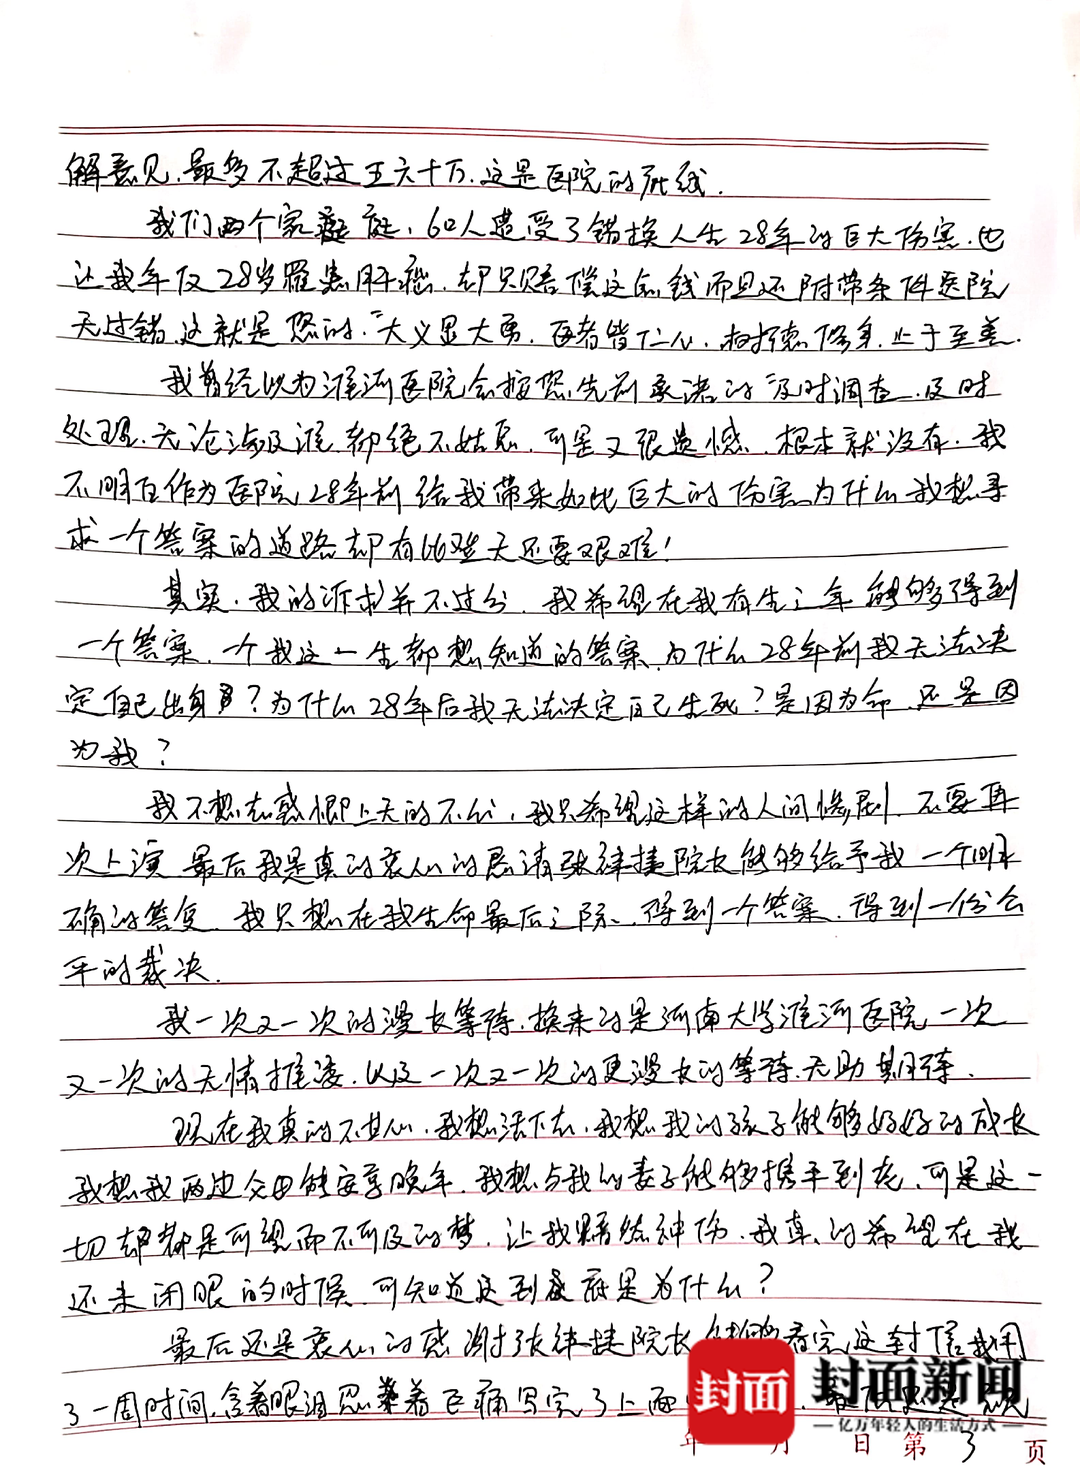 解意见，最多不超过五六十万，这是医院的底线。
我们两个家庭，60人遭受了错换人生28年的巨大伤害，也
让我年仅28岁罹患肝癌，却只赔偿这点钱而且还附带条件医院
无过错，这就是您的，“大义显大勇，医者皆仁心，相搀德修身，止于至善.
我曾经以为淮河医院会按您先前承诺的“及时调查，及时
处理，无论涉及谁都绝不姑息，可是又很遗憾，根本就没有，我
不明白作为医院，28年前给我带来如此巨大的伤害，为什么我想寻
求一个答案的道路却有比登天还要艰难！
其实，我的诉求并不过分，我希望在我有生之年能够得到
一个答案，一个我这一生都想知道的答案，为什么28年前我无法决
定自己出身？为什么28年后我无法决定自己生死？是因为命，还是因
为我？
我不想去感慨上天的不公，我只希望这样的人间惨剧，不要再
次上演，最后我是真的衷心的恳请张祎捷院长能够给予我一个明
确的答复，我只想在我生命最后之际，得到一个答案，得到一份公
平的裁决.
我一次又一次的漫长等待，换来的是河南大学淮河医院一次
又一次的无情推诿，以及一次又一次的更漫长的等待，无助期待.
现在我真的不甘心，我想活下去，我想我的孩子能够好好的成长
我想我两边父母能安享晚年，我想与我的妻子能够携手到老，可是这一
切却都是可望而不可及的梦，让我黯然神伤，我真的希望在我
还未闭眼的时候，可知道这到底是为什么？
最后还是衷心的感谢张祎捷院长能够看完这封信我用
了一周时间，含着眼泪忍着巨痛写完了上面
年 月 日 第 3 页
封面
封面新闻
亿万年轻人的生活方式